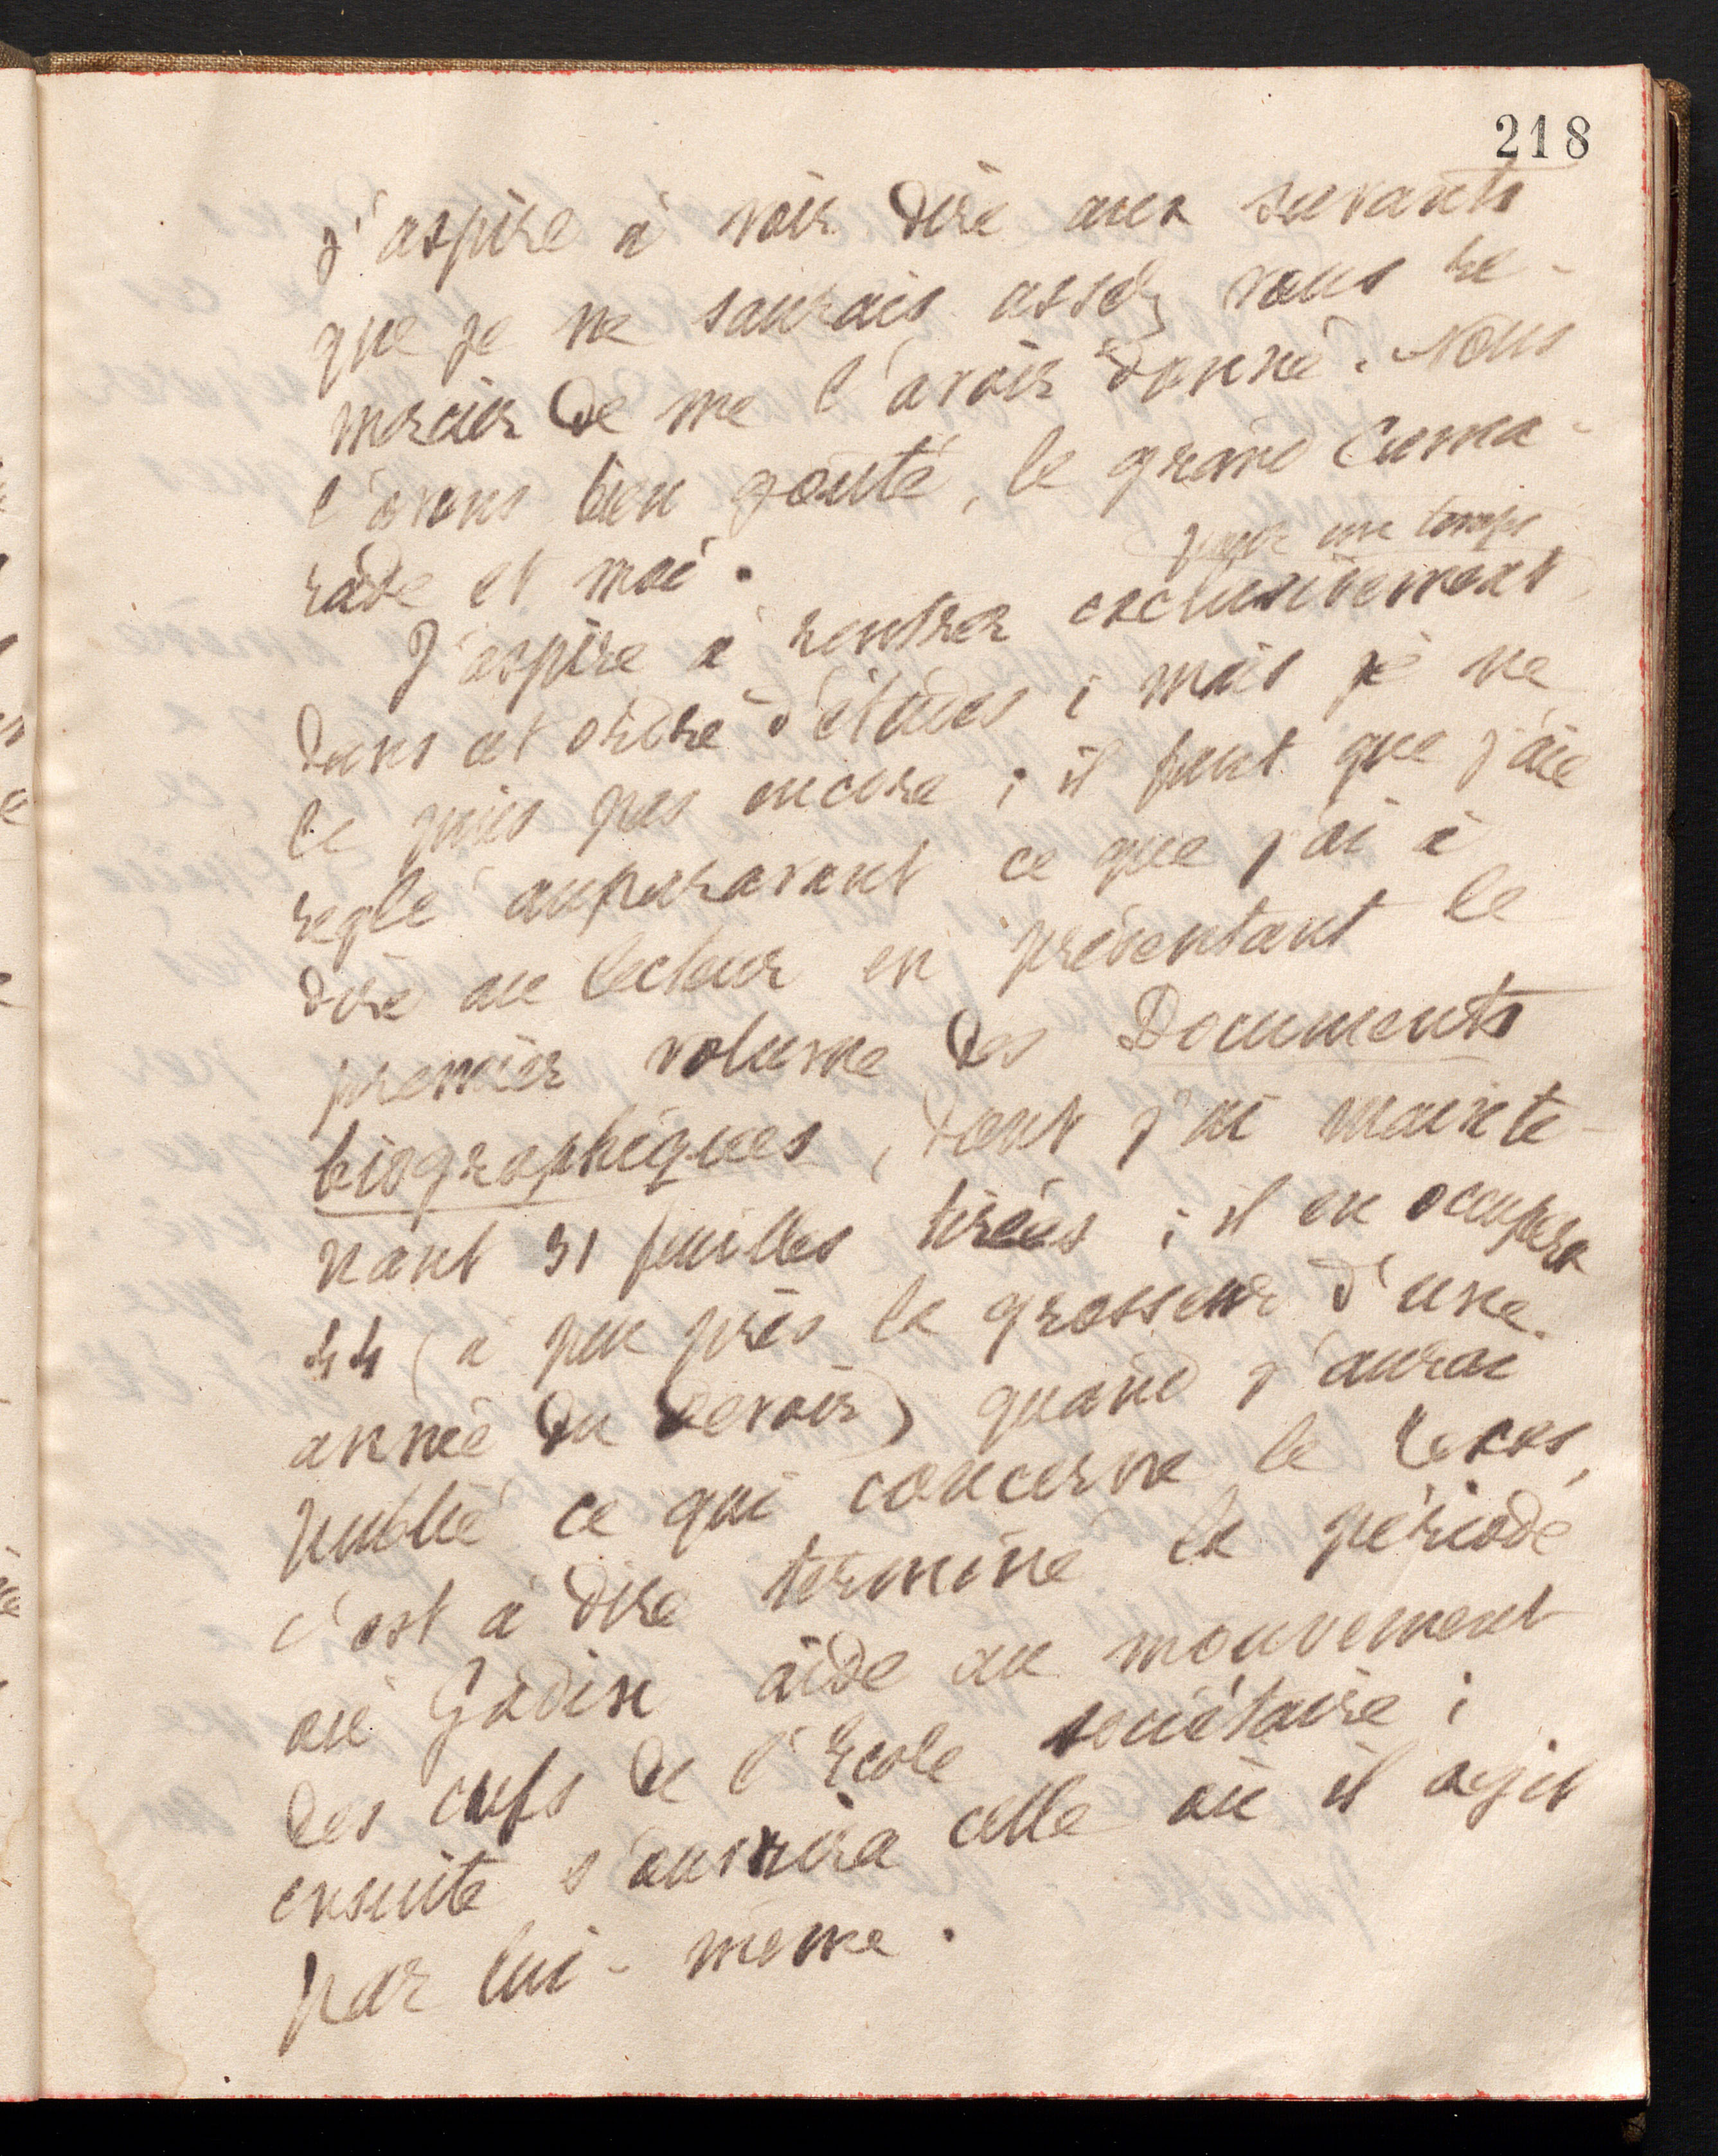 218
J'aspire à voir dire aux savants
que je ne saurais assez vous re-
mercier de me l'avoir donné. Nous
l'avons bien goûté, le grand Cama-
rade et moi.
pour un temps
J'aspire à rentrer exclusivement
dans cet ordre d'études ; mais je ne
le puis pas encore ; il faut que j'aie
reglé auparavant ce que j'ai à
dire au lecteur en présentant le
premier volume des Documents
biographiques, dont j'ai mainte-
nant 31 feuilles tirées ; il en occupera
44 (à peu près la grosseur d'une
année du Devoir) quand j'aurai
publié ce qui concerne le Texas,
c'est à dire terminé la période
où Godin aide au mouvement
des chefs de l'Ecole sociétaire ;
ensuite s'ouvrira celle où il agit
par lui-même.